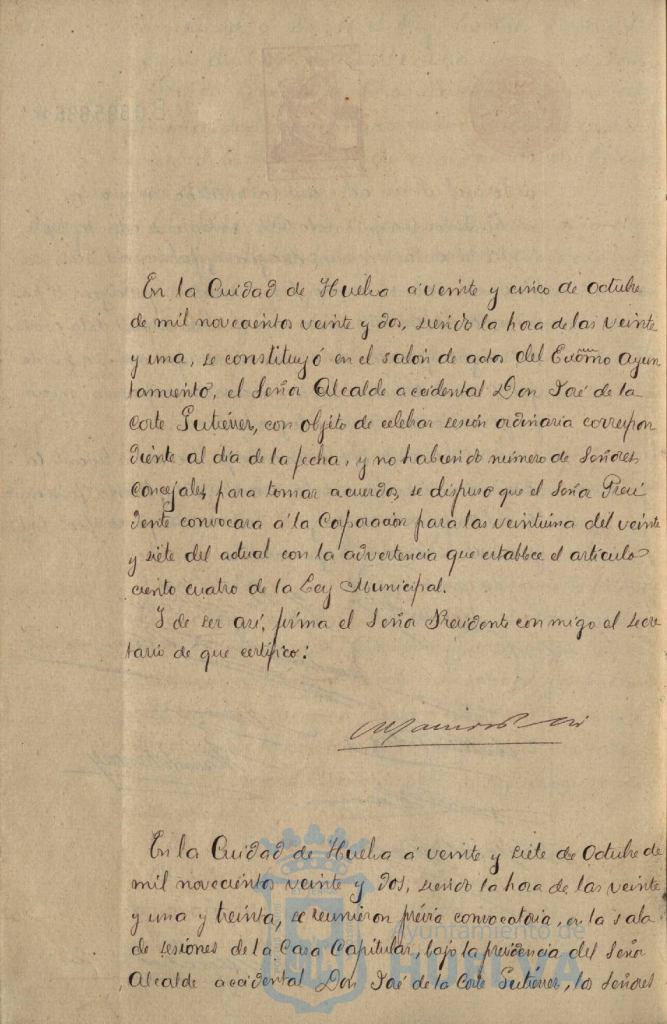 En la Ciudad de Huelva á veinte y cinco de Octubre
de mil novecientos veinte y dos, siendo la hora de las veinte
y una, se constituyó en el salón de actos del Excmo Ayun
tamiento, el Señor Alcalde accidental Don José de la
Corte Gutiérrez, con objeto de celebrar sesión ordinaria correspon
diente al día de la fecha, y no habiendo número de Señores
Concejales para tomar acuerdo, se dispuso que el Señor Presi
dente convocara á la Corporación para las veintiuna del veinte
y siete del actual con la advertencia que establece el artículo
ciento cuatro de la Ley Municipal.
Y de ser así, firma el Señor Presidente conmigo el secre
tario de que certifico:
En la Ciudad de Huelva á veinte y siete de Octubre de
mil novecientos veinte y dos, siendo la hora de las veinte
y una y treinta, se reunieron prévia convocatoria, en la sala
de sesiones de la Casa Capitular, bajo la presidencia del Señor
Alcalde accidental Don José de la Corte Gutiérrez, los Señores
Ayuntamiento de
HUELVA